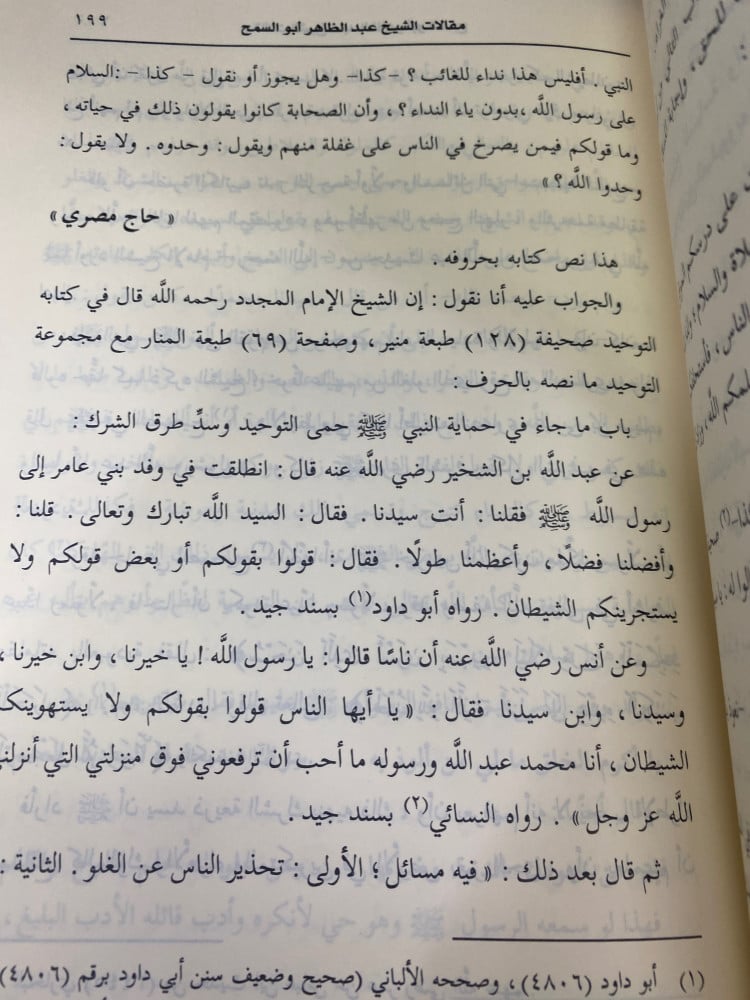 مقالات الشيخ عبد الظاهر أبو السمح ١٩٩
النبي . أفليس هذا نداء للغائب ؟ - كذا- وهل يجوز أو نقول - كذا - :السلام
على رسول الله ،بدون ياء النداء ؟ ، وأن الصحابة كانوا يقولون ذلك في حياته ،
وما قولكم فيمن يصرخ في الناس على غفلة منهم ويقول : وحدوه . ولا يقول :
وحدوا الله ؟ »
« حاج مصري »
هذا نص كتابه بحروفه .
والجواب عليه أنا نقول : إن الشيخ الإمام المجدد رحمه الله قال في كتابه
التوحيد صحيفة (١٢٨) طبعة منير ، وصفحة (٦٩) طبعة المنار مع مجموعة
التوحيد ما نصه بالحرف :
باب ما جاء في حماية النبي ﷺ حمى التوحيد وسدِّ طرق الشرك :
عن عبد الله بن الشخير رضي الله عنه قال : انطلقت في وفد بني عامر إلى
رسول الله ﷺ فقلنا : أنت سيدنا . فقال : السيد الله تبارك وتعالى . قلنا :
وأفضلنا فضلًا ، وأعظمنا طولًا . فقال : قولوا بقولكم أو بعض قولكم ولا
يستجرينكم الشيطان . رواه أبو داود(١) بسند جيد .
وعن أنس رضي الله عنه أن ناسًا قالوا : يا رسول الله ! يا خيرنا ، وابن خيرنا ،
وسيدنا ، وابن سيدنا فقال : « يا أيها الناس قولوا بقولكم ولا يستهوينك
الشيطان ، أنا محمد عبد الله ورسوله ما أحب أن ترفعوني فوق منزلتي التي أنزلني
الله عز وجل » . رواه النسائي(٢) بسند جيد .
ثم قال بعد ذلك : « فيه مسائل ؛ الأولى : تحذير الناس عن الغلو . الثانية :
(١) أبو داود (٤٨٠٦) ، وصححه الألباني (صحيح وضعيف سنن أبي داود برقم (٤٨٠٦)